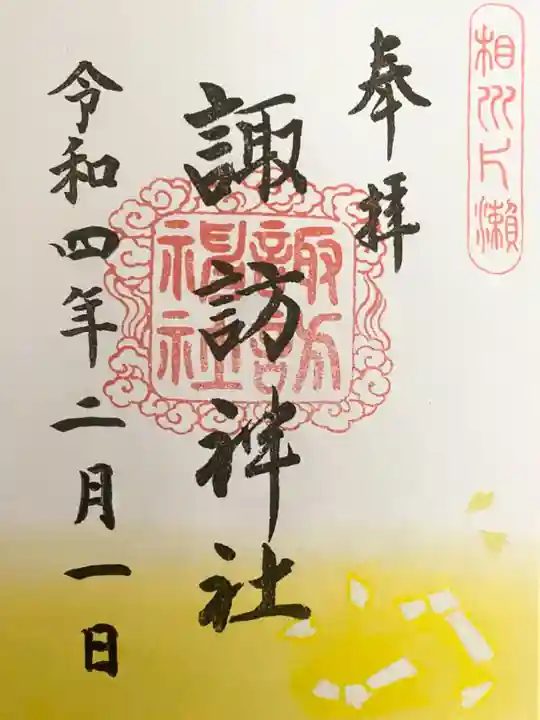 相州片瀬
奉拝
諏訪神社
諏訪神社
令和四年二月一日